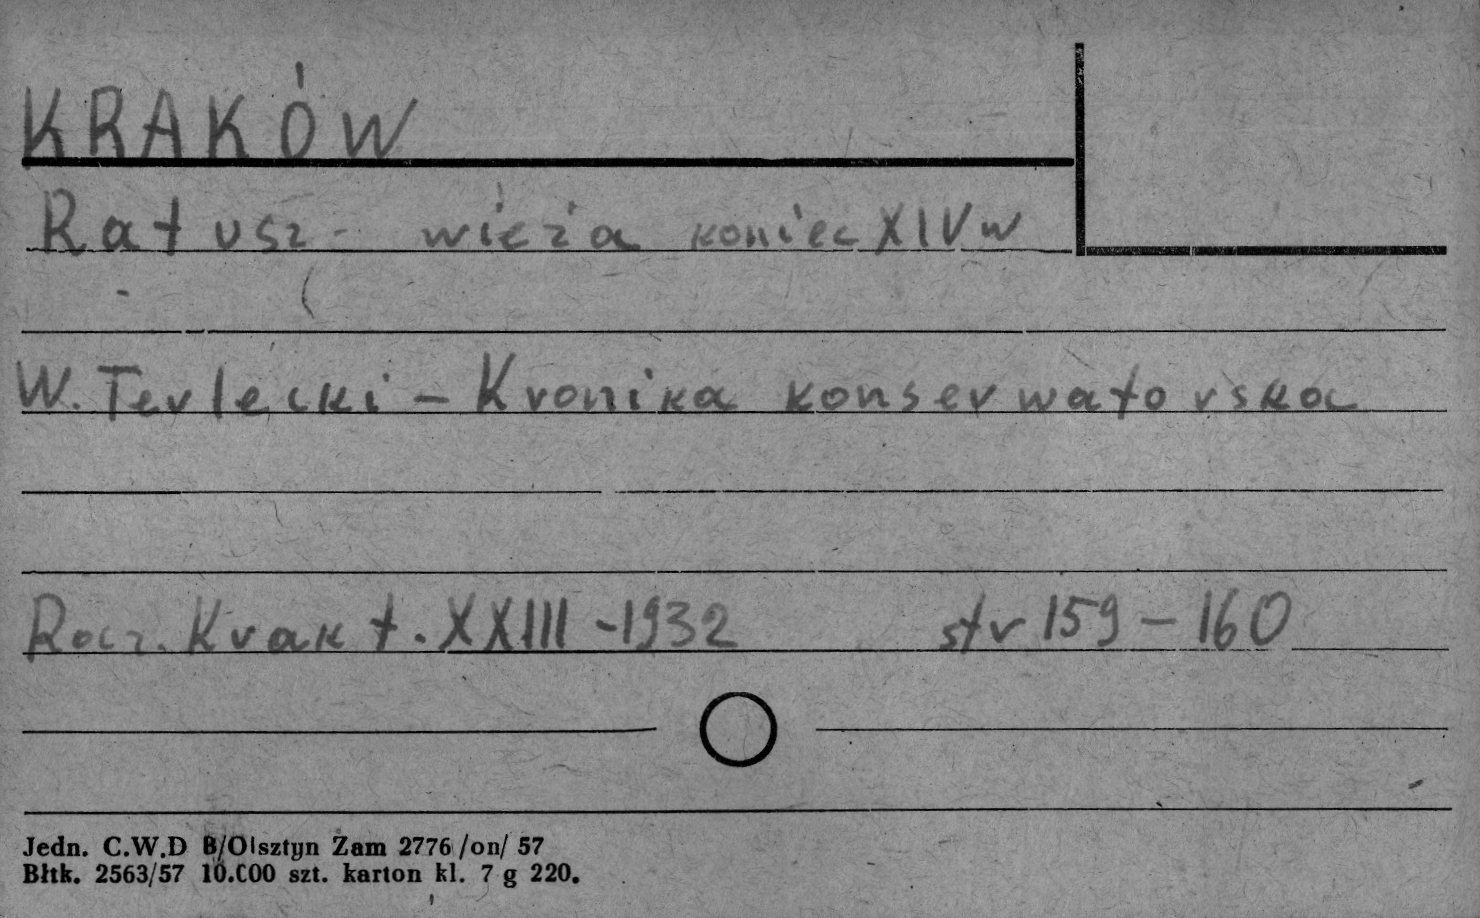 KRAKÓW
Ratusz - wieża koniec XIV w
W. Terlecki - Kronika konserwatorska
Rocz. Krak t. XXIII - 1932 str 159 - 160
Jedn. C.W.D B/Olsztyn Zam 2776 /on/ 57
Błtk. 2563/57 10.000 szt. karton kl. 7 g 220.